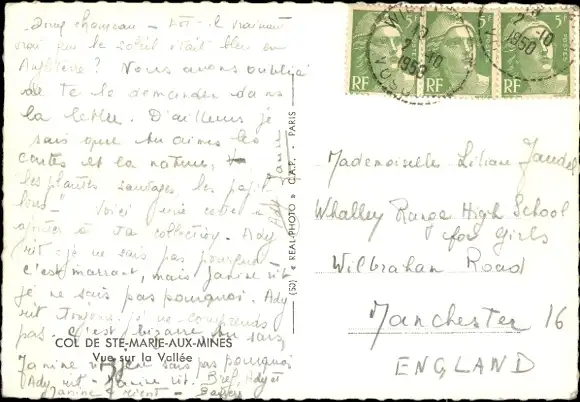 vrai que le soleil était bleu en
Angleterre ? Nous avons oublié
de te le demander dans
la lettre. D'ailleurs je
sais que tu aimes les
cartes et la nature,
"les plantes sauvages les papil-
lons" Voici une carte à
ajouter à ta collection. Ady
rit - je ne sais pas pourquoi
c'est marrant, mais Janine rit
je ne sais pas pourquoi. Ady
rit toujours je ne comprends
pas. c'est bizarre tu sais,
COL DE STE-MARIE-AUX-MINES
Vue sur la Vallée
Janine rit je ne sais pas pourquoi
Ady rit - Janine rit. Bref, Ady et
Janine rient -
Ady Janine
(53) « REAL-PHOTO » C.A.P. - PARIS
5F
RF
5F
RF
5F
RF
10
1950
2-10
1950
Mademoiselle Liliane
Whalley Range High School
for Girls
Wilbraham Road
Manchester 16
ENGLAND